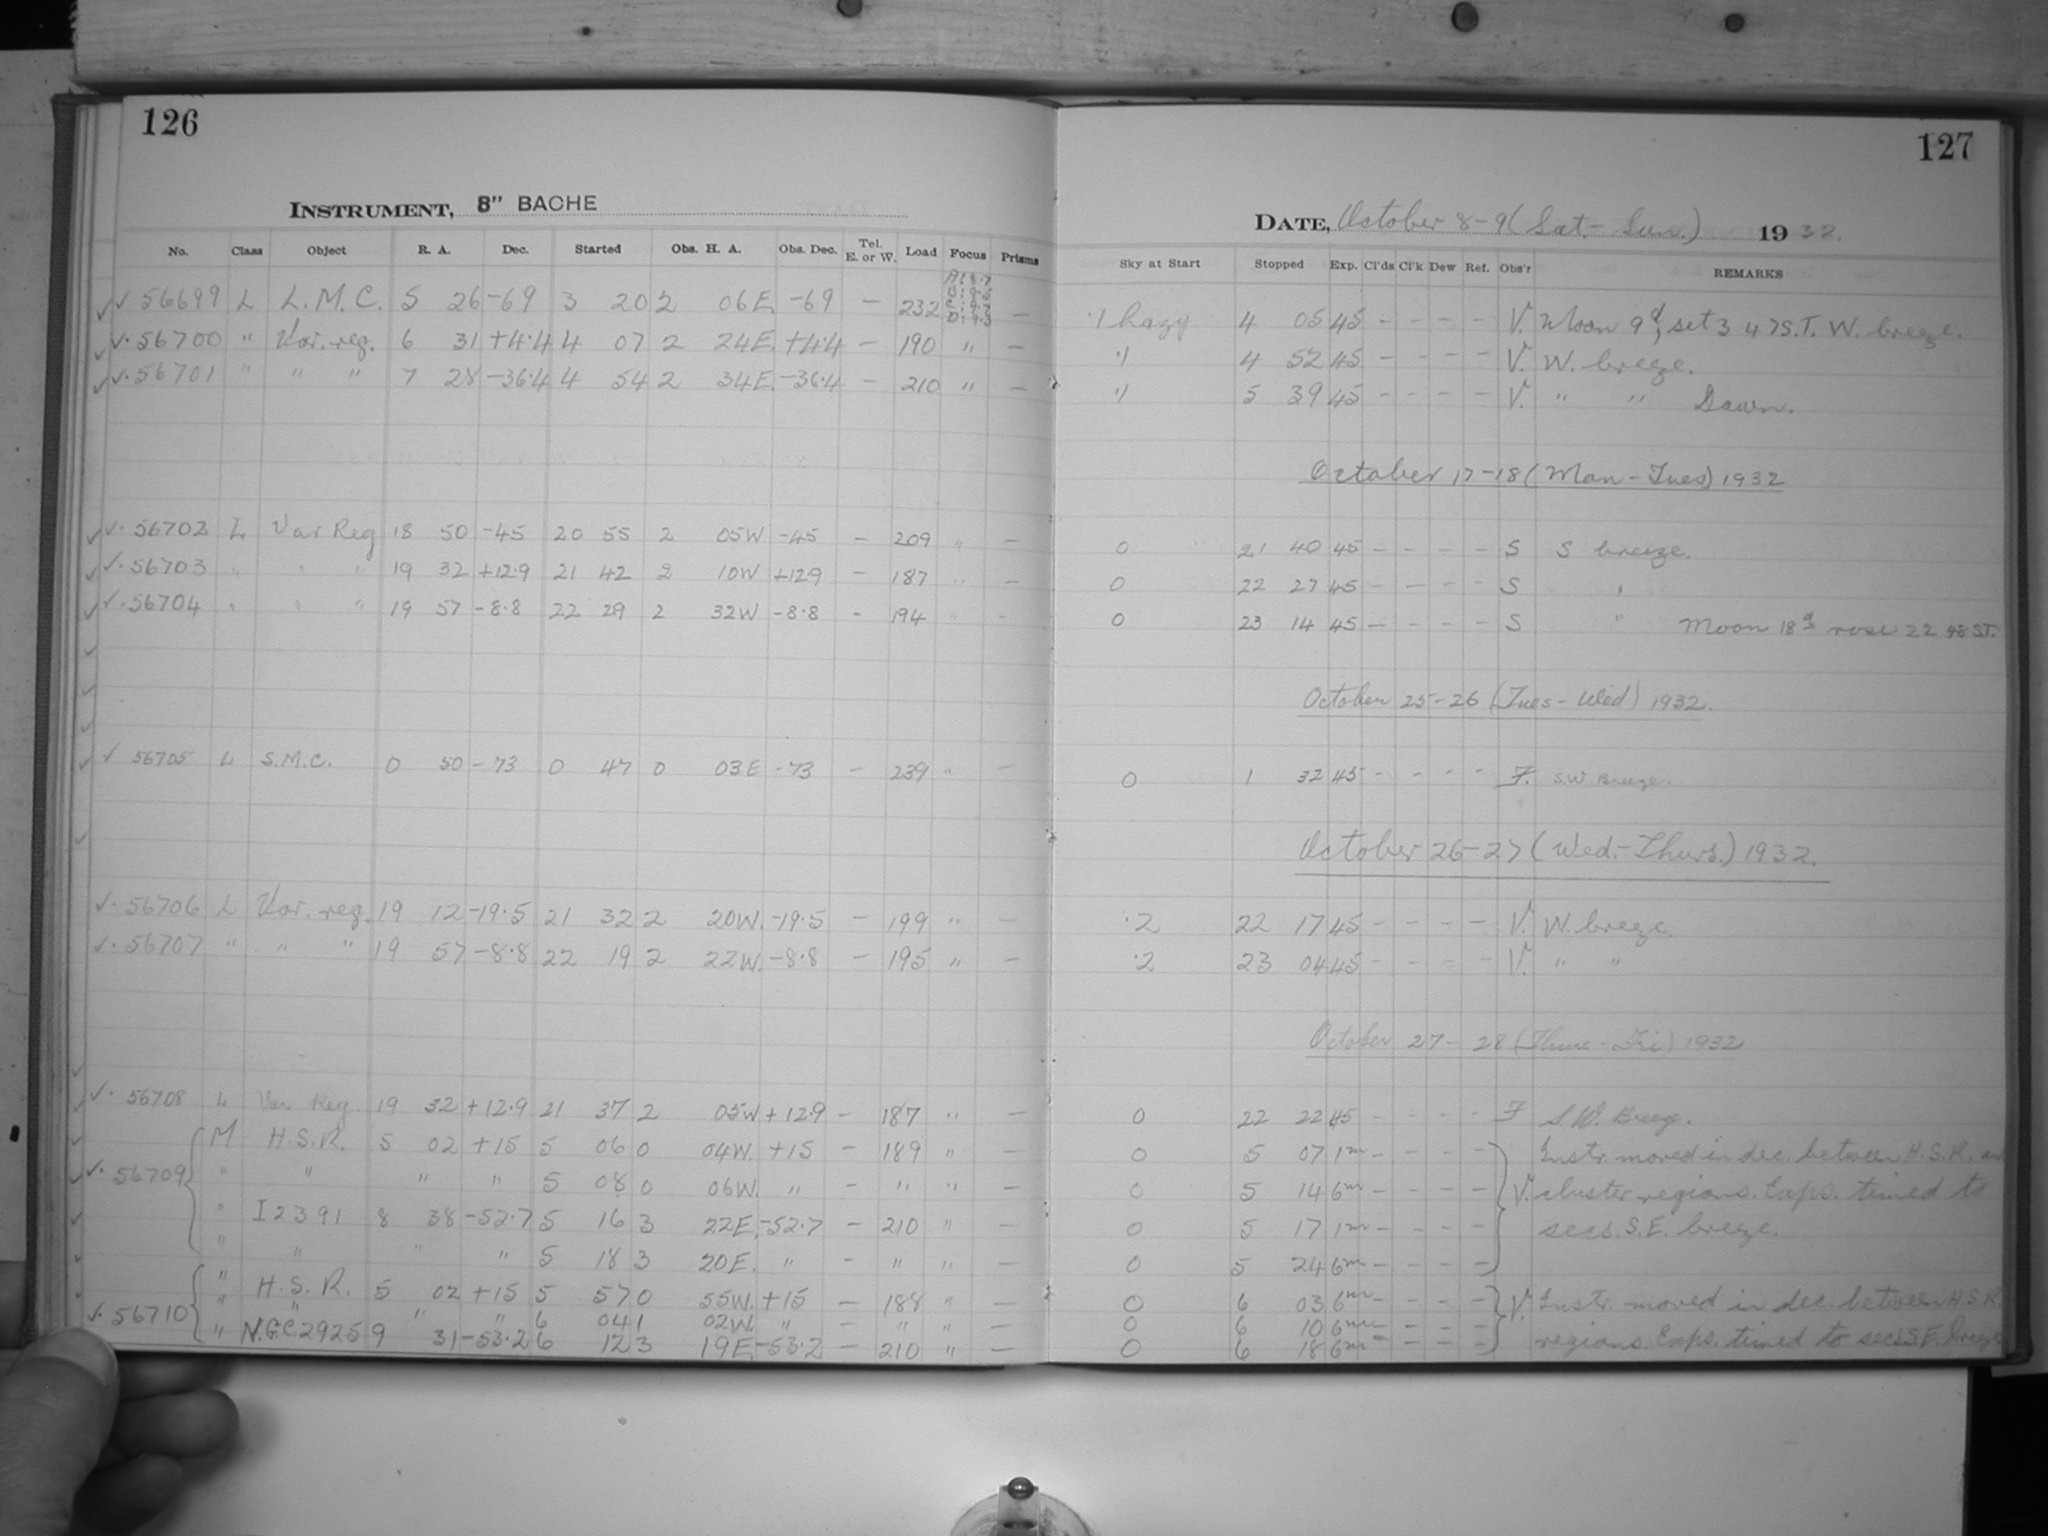 126
INSTRUMENT, 8" BACHE
No. Class Object R. A. Dec. Started Obs. H. A. Obs. Dec. Tel. E. or W. Load Focus Prisms
✓ 56699 L L.M.C. 5 26 -69 3 20 2 06E. -69 — 232 —
✓. 56700 " Var. reg. 6 31 +4.4 4 07 2 24E. +4.4 — 190 " —
✓. 56701 " " " 7 28 -36.4 4 54 2 34E. -36.4 — 210 " —
✓. 56702 L Var Reg 18 50 -45 20 55 2 05W -45 — 209 " —
✓. 56703 " " " 19 32 +12.9 21 42 2 10W +12.9 — 187 " —
✓. 56704 " " " 19 57 -8.8 22 29 2 32W -8.8 - 194 " —
✓ 56705 L S.M.C. 0 50 -73 0 47 0 03E -73 — 239 " —
✓. 56706 L Var. reg. 19 12 -19.5 21 32 2 20W. -19.5 — 199 " —
✓. 56707 " " " 19 57 -8.8 22 19 2 22W. -8.8 — 195 " —
✓. 56708 L Var Reg. 19 32 +12.9 21 37 2 05W +12.9 - 187 " —
M H.S.R. 5 02 +15 5 06 0 04W. +15 — 189 " —
✓. 56709 " " " " 5 08 0 06W. " — " " —
" I2391 8 38 -52.7 5 16 3 22E. -52.7 — 210 " —
" " " " 5 18 3 20E. " — " " —
" H.S.R. 5 02 +15 5 57 0 55W. +15 — 188 " —
✓. 56710 " " " " 6 04 1 02W. " — " " —
" N.G.C 2925 9 31 -53.2 6 12 3 19E. -53.2 — 210 " —
127
DATE, October 8-9 (Sat.- Sun.) 1932.
Sky at Start Stopped Exp. Cl'ds Cl'k Dew Ref. Obs'r REMARKS
.1 hazy 4 05 45 - - - - V. Moon 9d, set 3 47 S.T. W. breeze.
.1 4 52 45 - - - - V. W. breeze.
.1 5 39 45 - - - - V. " " Dawn.
October 17-18 (Mon - Tues) 1932
0 21 40 45 - - - - S S breeze.
0 22 27 45 - - - - S "
0 23 14 45 - - - - S " Moon 18d rose 22 48 S.T.
October 25-26 (Tues - Wed) 1932.
0 1 32 45 - - - - F. S.W. Breeze.
October 26-27 (Wed.-Thurs.) 1932.
.2 22 17 45 - - - - V. W. breeze.
.2 23 04 45 - - - - V. " "
October 27-28 (Thurs - Fri) 1932
0 22 22 45 - - - - F S.W. Breeze.
0 5 07 1m - - - - Instr. moved in dec. between H.S.R. and
0 5 14 6m - - - - V. cluster regions. Exps. timed to
0 5 17 1m - - - - secs. S.E. breeze.
0 5 24 6m - - - -
0 6 03 6m - - - - V. Instr. moved in dec. between H.S.R.
0 6 10 6m - - - -
0 6 18 6m - - - - regions. Exps. timed to secs. S.E. breeze